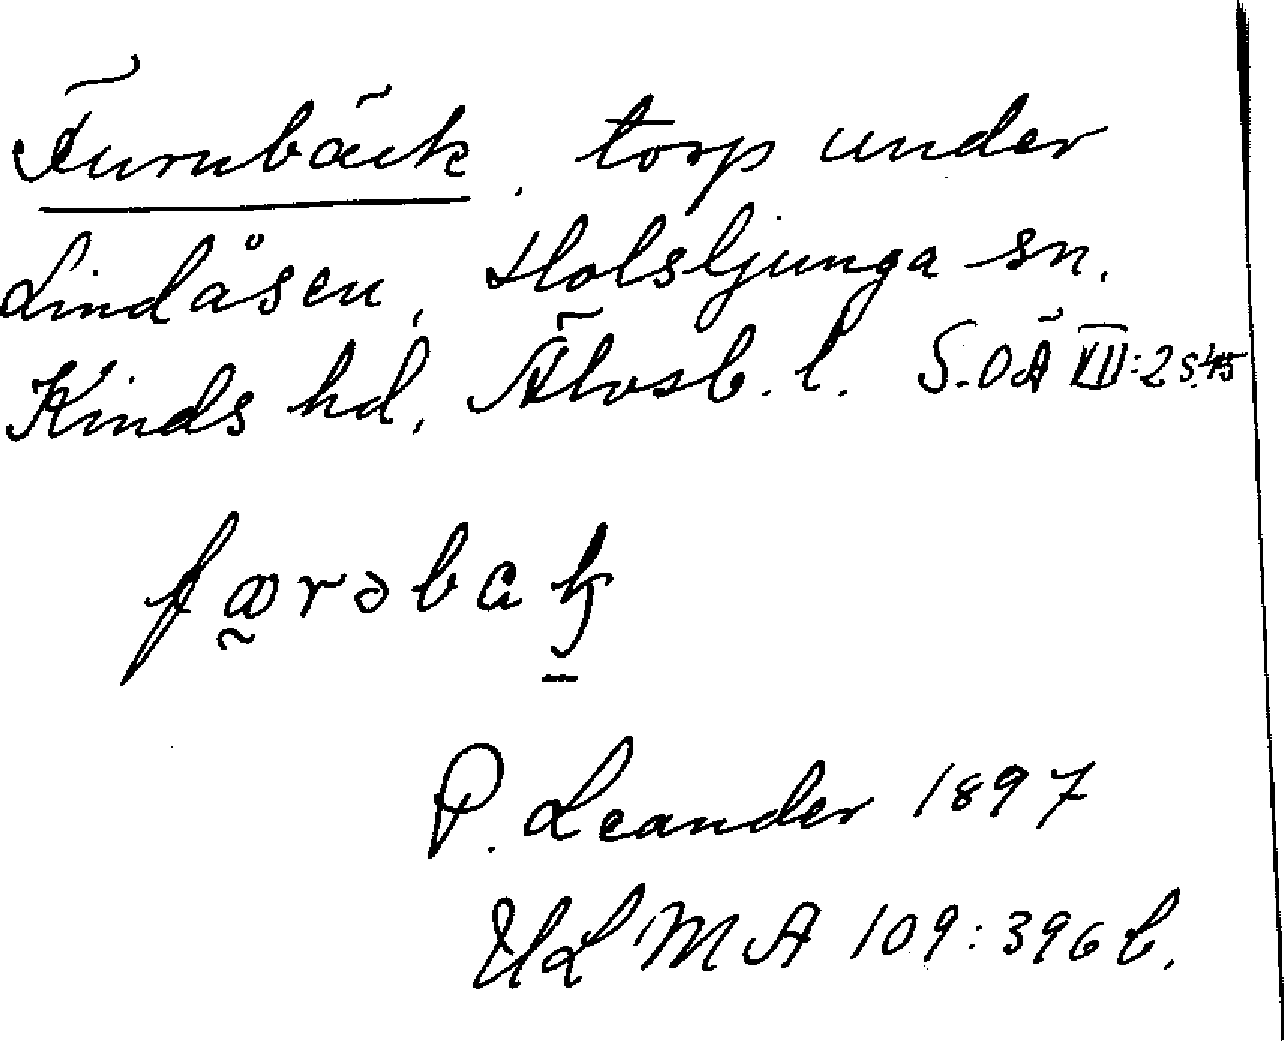 Furnbäck, torp under
Lindåsen, Holsljunga sn.
Kinds hd, Älvsb. l. S.O.Ä VII:2 s.45
færəbak
P. Leander 1897
ULMA 109:396 b.